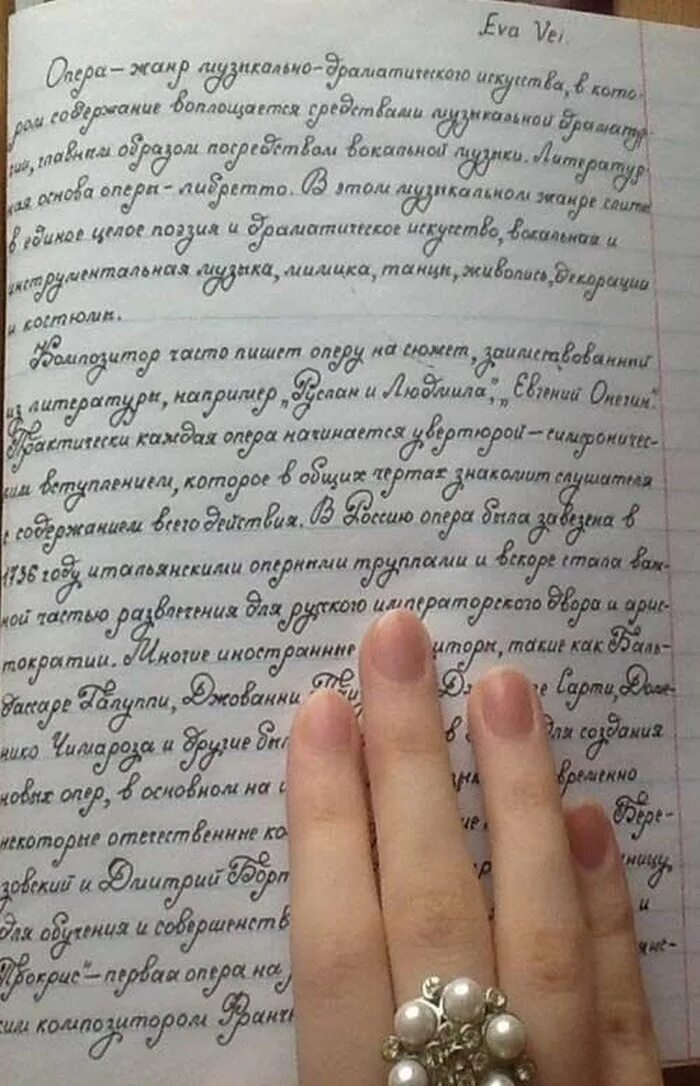 Eva Vei.
Опера – жанр музыкально-драматического искусства, в кото-
ром содержание воплощается средствами музыкальной драматур
гии, главным образом посредством вокальной музыки. Литератур
ная основа оперы – либретто. В этом музыкальном жанре слиты
в единое целое поэзия и драматическое искусство, вокальная и
инструментальная музыка, мимика, танцы, живопись, декорации
и костюмы.
Композитор часто пишет оперу на сюжет, заимствованный
из литературы, например „Руслан и Людмила”, „Евгений Онегин”.
Практически каждая опера начинается увертюрой – симфоничес-
ким вступлением, которое в общих чертах знакомит слушателя
с содержанием всего действия. В Россию опера была завезена в
1736 году итальянскими оперными труппами и вскоре стала важ-
ной частью развлечения для русского императорского двора и арис-
тократии. Многие иностранные иторы, такие как Баль-
дассаре Галуппи, Джованни Сарти, Доме-
нико Чимароза и другие в для создания
новых опер, в основном на временно
некоторые отечественные Бере-
зовский и Дмитрий Борт ницу,
для обучения и совершенств и
Прокрис” – первая опера на
ким композитором Франч